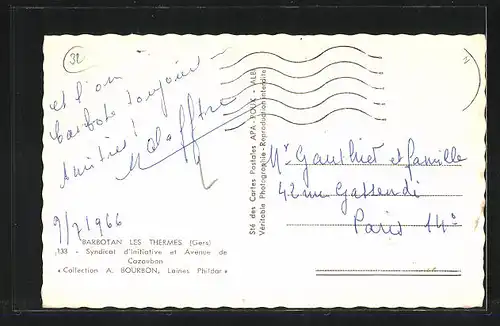 32
et l'on
barbote toujours
Amitiés !
9/7/1966
BARBOTAN LES THERMES (Gers)
133 - Syndicat d'initiative et Avenue de
Cazaubon
« Collection A. BOURBON, Laines Phildar »
Sté des Cartes Postales APA - POUX - ALBI
Véritable Photographie - Reproduction interdite
Mr Gauthier et famille
42 rue Gassendi
Paris 14e